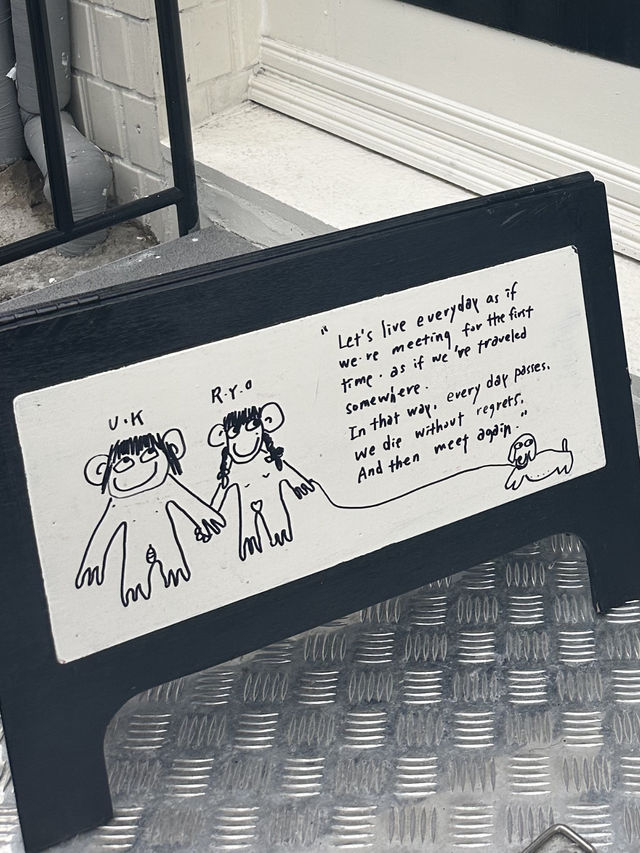 U.K
R.Y.O
"Let's live everyday as if
we're meeting for the first
time. as if we've traveled
somewhere.
In that way, every day passes.
we die without regrets.
And then meet again."